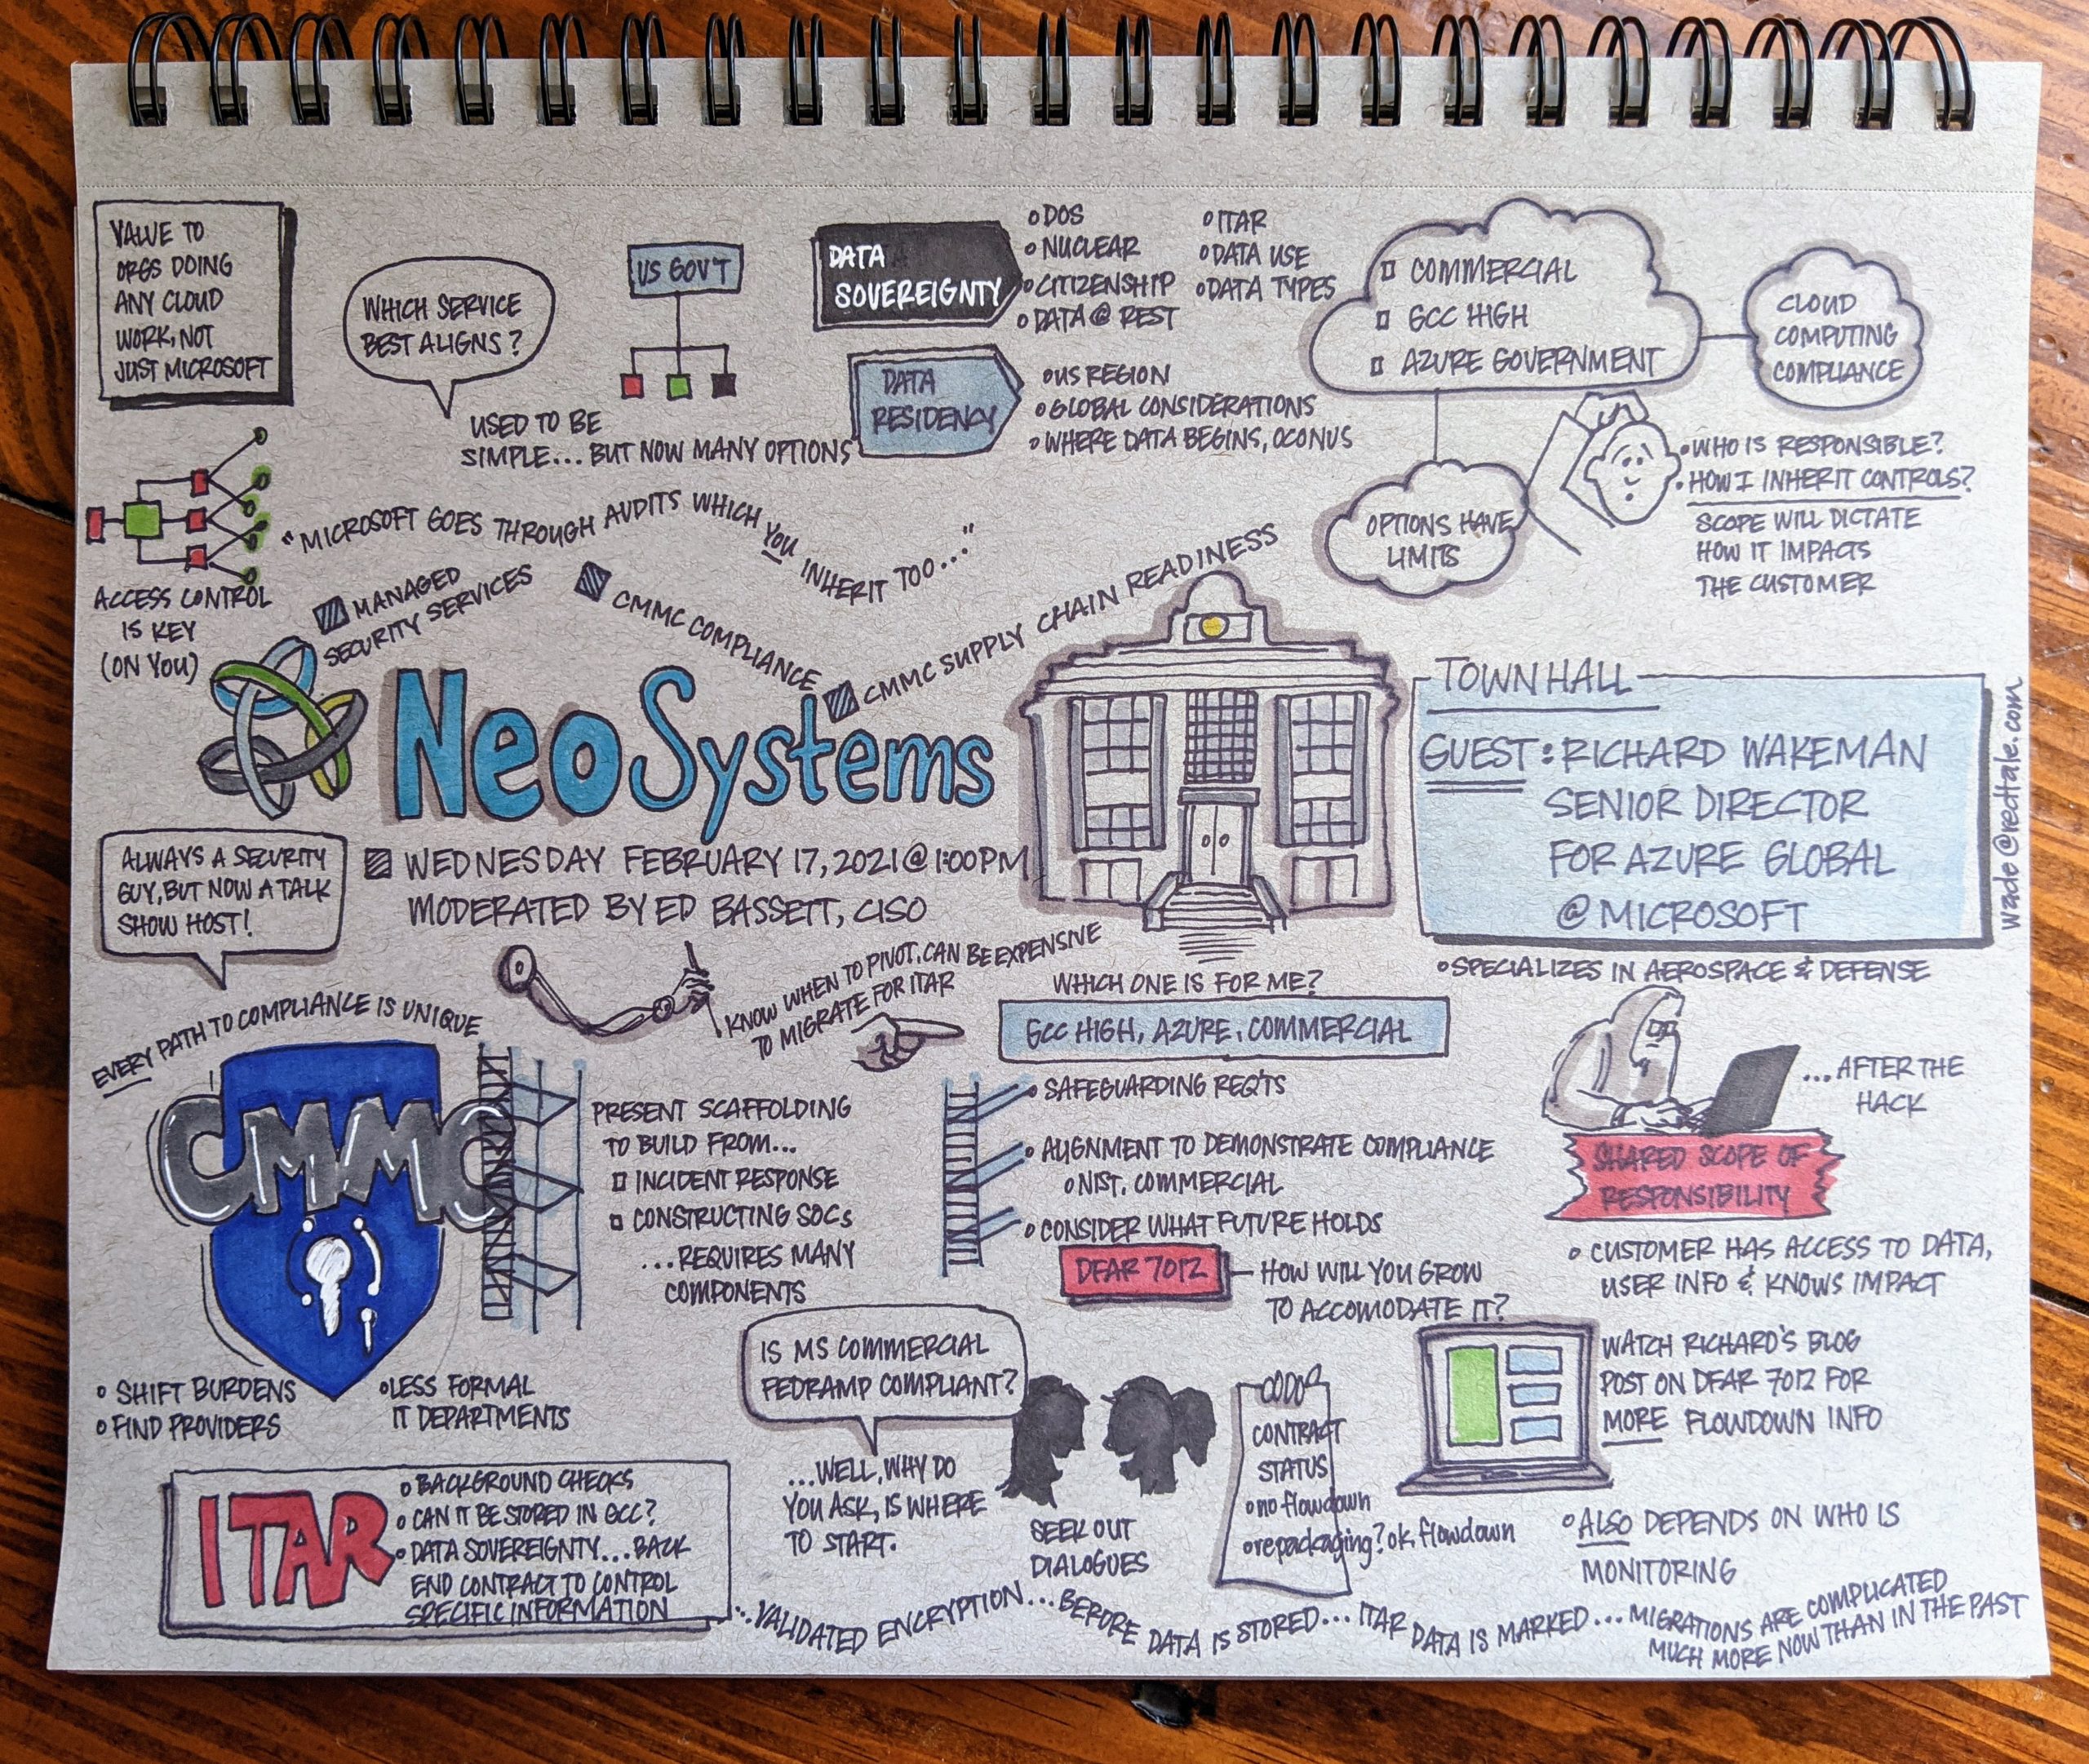 VALUE TO
ORGS DOING
ANY CLOUD
WORK, NOT
JUST MICROSOFT
WHICH SERVICE
BEST ALIGNS?
USED TO BE
SIMPLE... BUT NOW MANY OPTIONS
US GOV'T
DATA
SOVEREIGNTY
DOS
NUCLEAR
CITIZENSHIP
DATA @ REST
ITAR
DATA USE
DATA TYPES
DATA
RESIDENCY
US REGION
GLOBAL CONSIDERATIONS
WHERE DATA BEGINS, OCONUS
COMMERCIAL
GCC HIGH
AZURE GOVERNMENT
CLOUD
COMPUTING
COMPLIANCE
OPTIONS HAVE
LIMITS
WHO IS RESPONSIBLE?
HOW I INHERIT CONTROLS?
SCOPE WILL DICTATE
HOW IT IMPACTS
THE CUSTOMER
ACCESS CONTROL
IS KEY
(ON YOU)
"MICROSOFT GOES THROUGH AUDITS WHICH YOU INHERIT TOO..."
MANAGED
SECURITY SERVICES
CMMC COMPLIANCE
CMMC SUPPLY CHAIN READINESS
NeoSystems
WEDNESDAY FEBRUARY 17, 2021 @ 1:00PM
MODERATED BY ED BASSETT, CISO
TOWN HALL
GUEST: RICHARD WAKEMAN
SENIOR DIRECTOR
FOR AZURE GLOBAL
@ MICROSOFT
SPECIALIZES IN AEROSPACE & DEFENSE
wade@redtale.com
ALWAYS A SECURITY
GUY, BUT NOW A TALK
SHOW HOST!
EVERY PATH TO COMPLIANCE IS UNIQUE
KNOW WHEN TO PIVOT, CAN BE EXPENSIVE
TO MIGRATE FOR ITAR
WHICH ONE IS FOR ME?
GCC HIGH, AZURE, COMMERCIAL
SAFEGUARDING REQ'TS
ALIGNMENT TO DEMONSTRATE COMPLIANCE
NIST, COMMERCIAL
CONSIDER WHAT FUTURE HOLDS
DFAR 7012
HOW WILL YOU GROW
TO ACCOMODATE IT?
...AFTER THE
HACK
SHARED SCOPE OF
RESPONSIBILITY
CUSTOMER HAS ACCESS TO DATA,
USER INFO & KNOWS IMPACT
CMMC
PRESENT SCAFFOLDING
TO BUILD FROM...
INCIDENT RESPONSE
CONSTRUCTING SOCs
...REQUIRES MANY
COMPONENTS
SHIFT BURDENS
FIND PROVIDERS
LESS FORMAL
IT DEPARTMENTS
IS MS COMMERCIAL
FEDRAMP COMPLIANT?
...WELL, WHY DO
YOU ASK, IS WHERE
TO START.
SEEK OUT
DIALOGUES
CONTRACT
STATUS
no flowdown
repackaging? ok, flowdown
WATCH RICHARD'S BLOG
POST ON DFAR 7012 FOR
MORE FLOWDOWN INFO
ALSO DEPENDS ON WHO IS
MONITORING
ITAR
BACKGROUND CHECKS
CAN IT BE STORED IN GCC?
DATA SOVEREIGNTY... BACK
END CONTRACT TO CONTROL
SPECIFIC INFORMATION
...VALIDATED ENCRYPTION... BEFORE DATA IS STORED... ITAR DATA IS MARKED... MIGRATIONS ARE COMPLICATED
MUCH MORE NOW THAN IN THE PAST